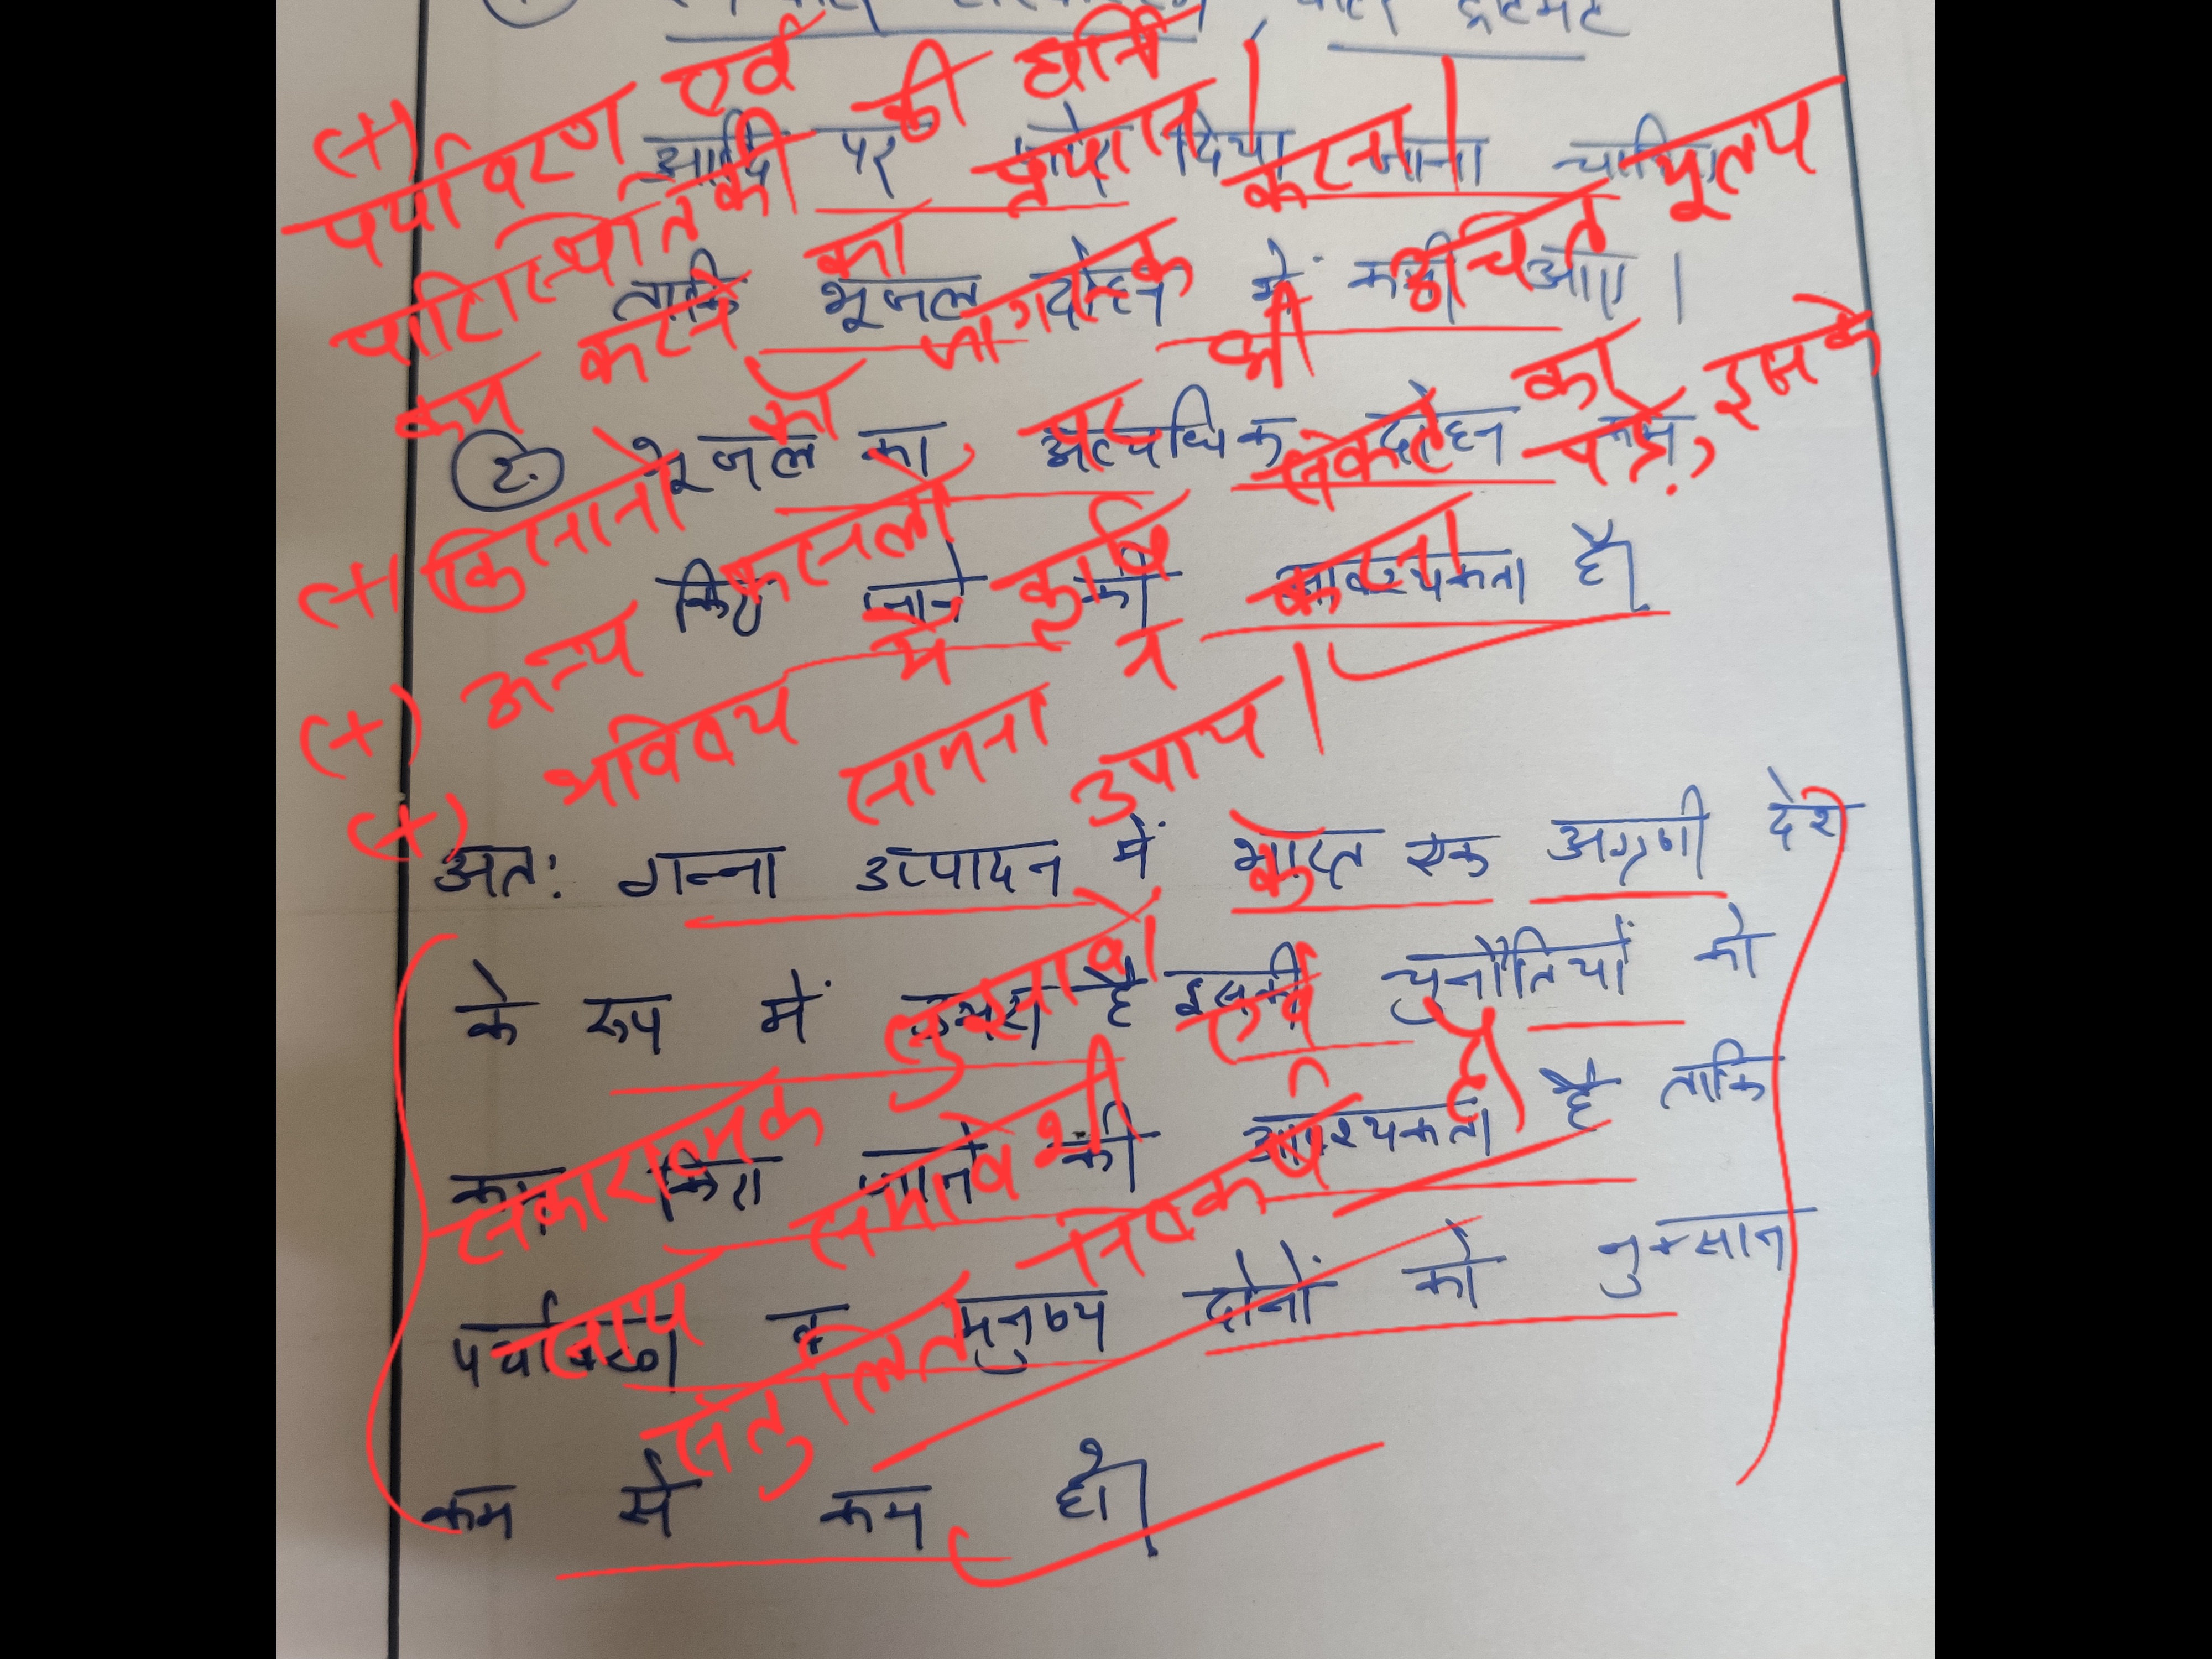 आदि पर जोर दिया जाना चाहिए
ताकि भूजल दोहन में कमी आए।
2. भूजल का अत्यधिक दोहन कम
किए जाने की आवश्यकता है।
अतः गन्ना उत्पादन में भारत एक अग्रणी देश
के रूप में उभरा है इसकी चुनौतियों को
कम किए जाने की आवश्यकता है ताकि
पर्यावरण व मनुष्य दोनों को नुकसान
कम से कम हो।
(+) पर्यावरण एवं
पारिस्थितिकी की हानि
कम करने का प्रयास करना।
(+) किसानों को जागरूक करना।
(+) अन्य फसलों का भी उचित मूल्य
(+) भविष्य में कृषि संकट का
सामना न करना पड़े, इसके
उपाय।
सकारात्मक सुझावों के
साथ समावेशी एवं
संतुलित निष्कर्ष है।